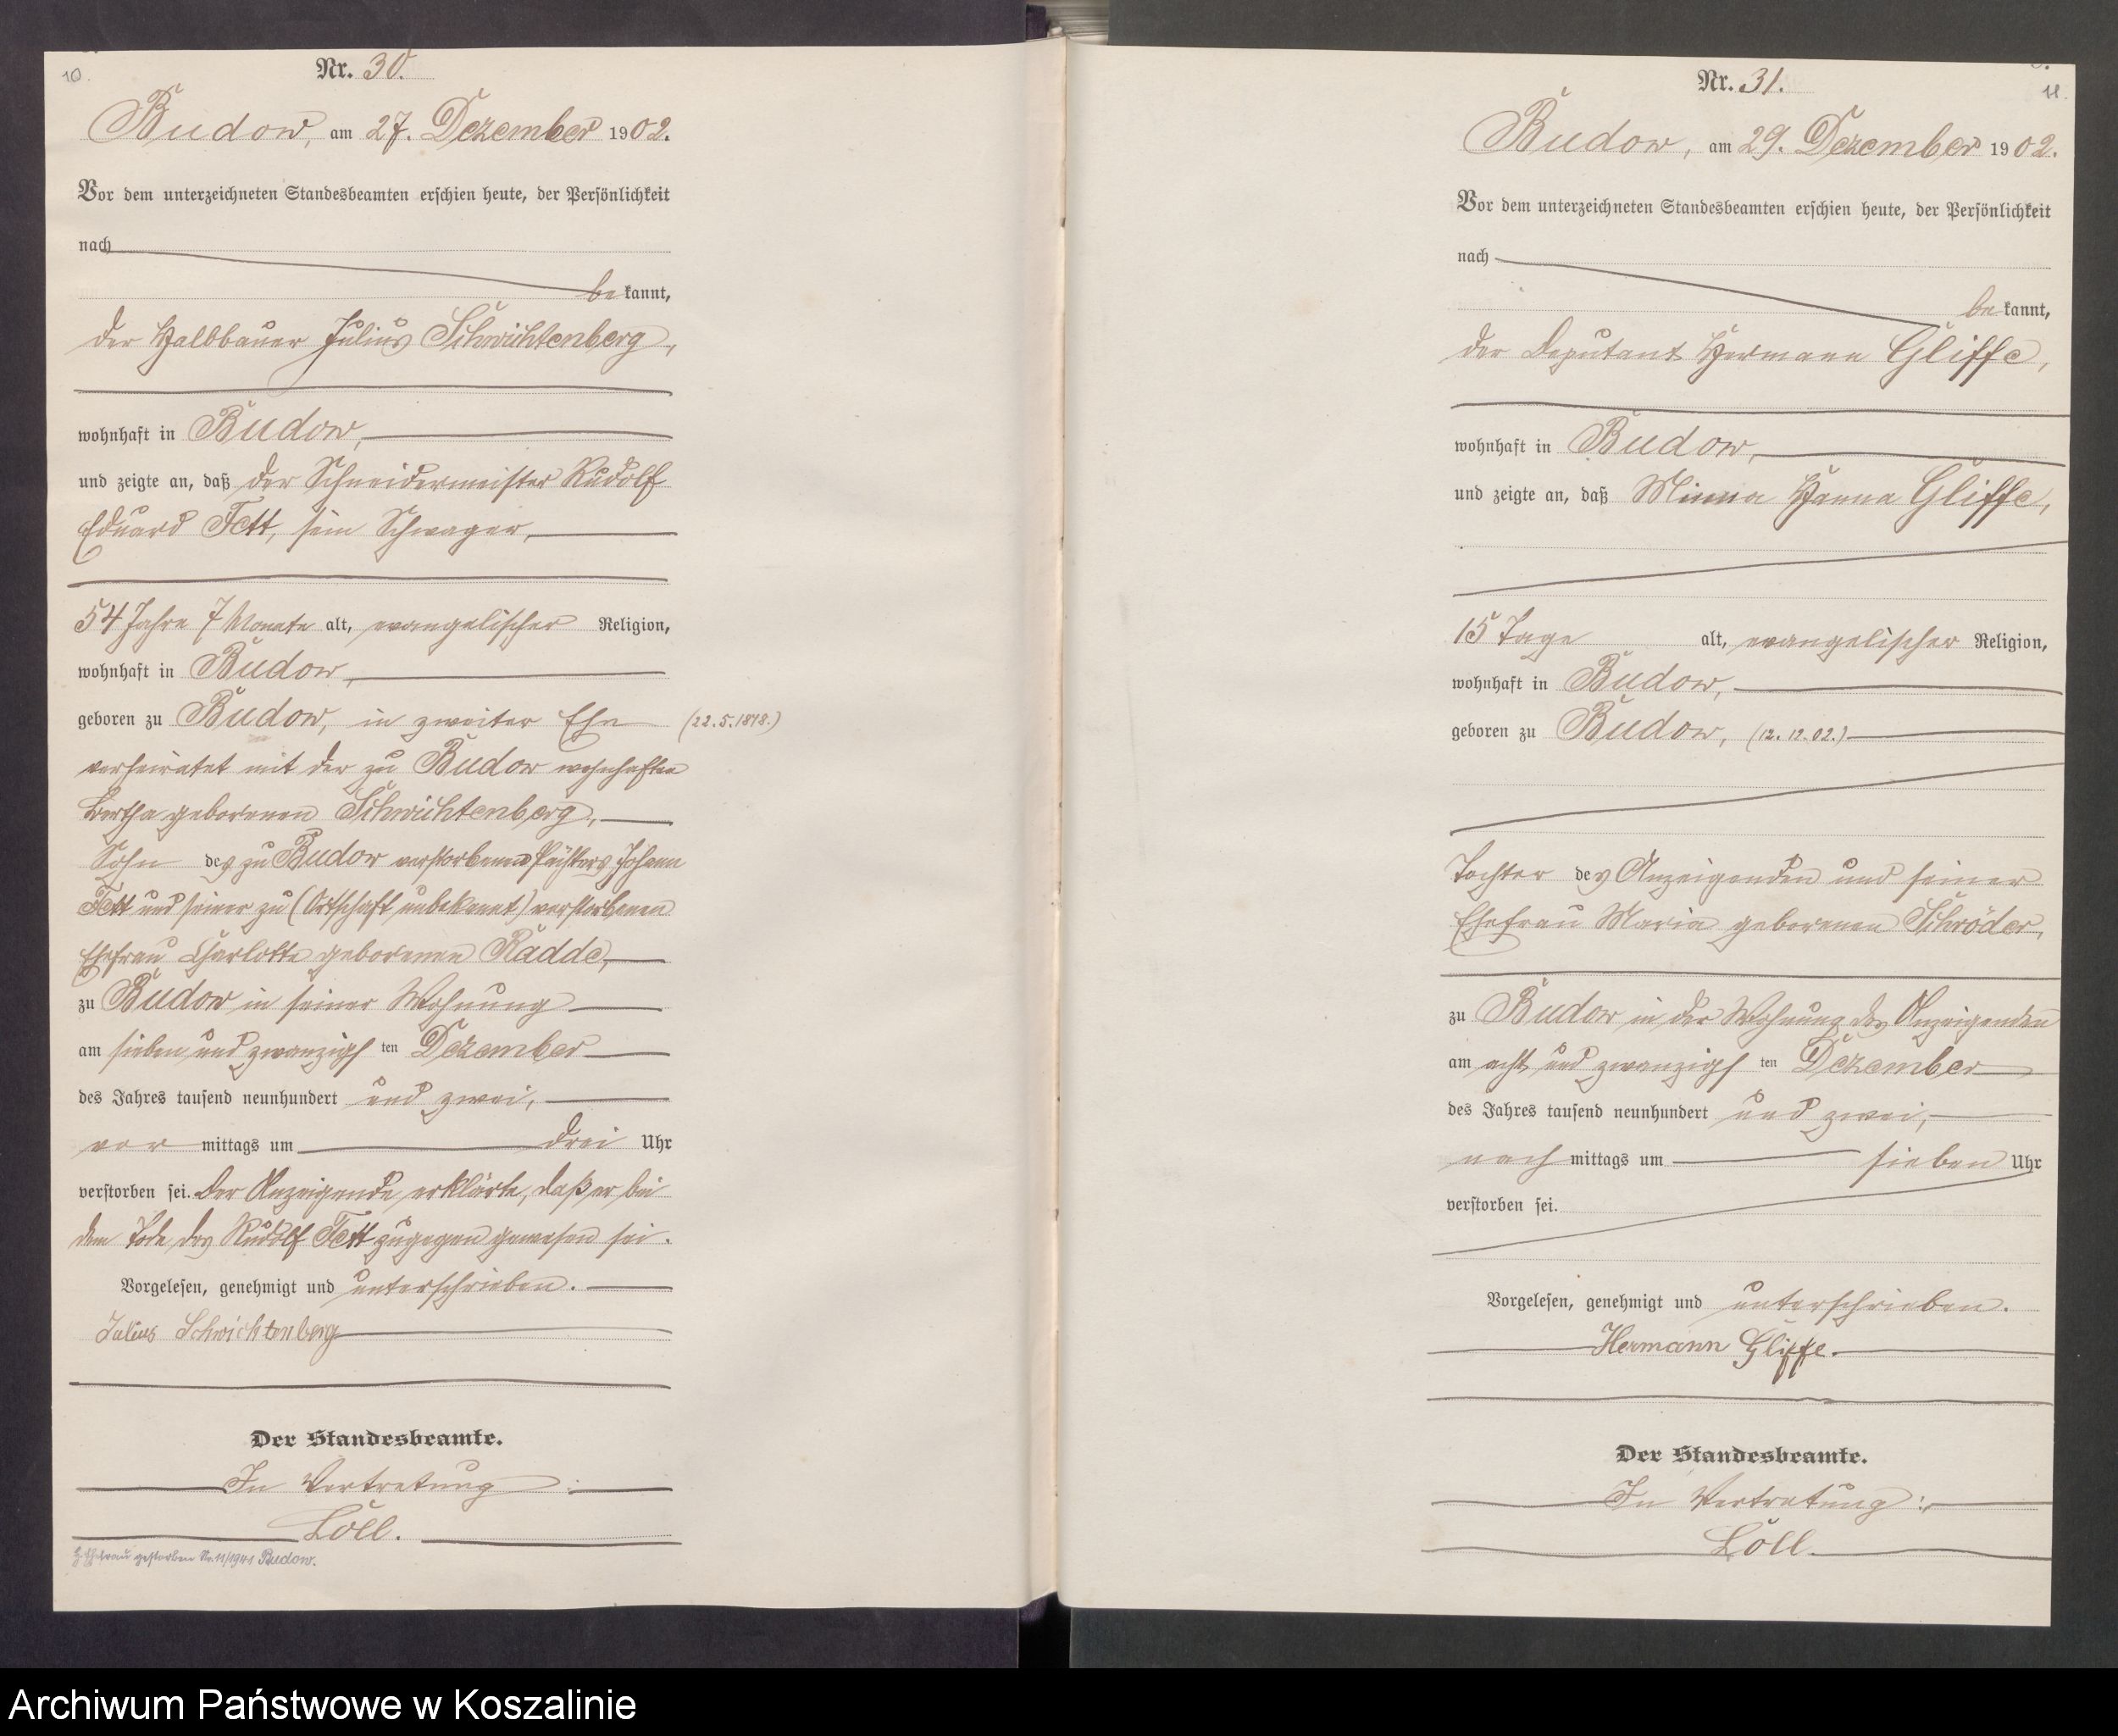 10.
Nr. 30.
Budow, am 27. Dezember 1902.
Vor dem unterzeichneten Standesbeamten erschien heute, der Persönlichkeit
nach
bekannt,
der Halbbauer Julius Schwichtenberg,
wohnhaft in Budow,
und zeigte an, daß der Schneidermeister Rudolf
Eduard Fett, sein Schwager,
54 Jahre 7 Monate alt, evangelischer Religion,
wohnhaft in Budow,
geboren zu Budow, in zweiter Ehe
verheiratet mit der zu Budow wohnhaften
Bertha geborenen Schwichtenberg,
Sohn des zu Budow verstorbenen Pächters Johann
Fett und seiner zu (Ortschaft unbekannt) verstorbenen
Ehefrau Charlotte geborenen Radde,
zu Budow in seiner Wohnung
am sieben und zwanzigsten Dezember
des Jahres tausend neunhundert und zwei,
vor mittags um drei Uhr
verstorben sei. Der Anzeigende erklärte, daß er bei
dem Tode des Rudolf Fett zugegen gewesen sei.
Vorgelesen, genehmigt und unterschrieben.
Julius Schwichtenberg
Der Standesbeamte.
In Vertretung:
Löll.
Ehefrau gestorben Nr. 11/1941 Budow.
Nr. 31.
11.
Budow, am 29. Dezember 1902.
Vor dem unterzeichneten Standesbeamten erschien heute, der Persönlichkeit
nach
bekannt,
der Deputant Hermann Gliffe,
wohnhaft in Budow,
und zeigte an, daß Minna Hanna Gliffe,
15 Tage alt, evangelischer Religion,
wohnhaft in Budow,
geboren zu Budow, (12.12.02.)
Tochter des Anzeigenden und seiner
Ehefrau Maria geborenen Schröder,
zu Budow in der Wohnung des Anzeigenden
am acht und zwanzigsten Dezember
des Jahres tausend neunhundert und zwei,
nach mittags um sieben Uhr
verstorben sei.
Vorgelesen, genehmigt und unterschrieben.
Hermann Gliffe.
Der Standesbeamte.
In Vertretung:
Löll.
Archiwum Państwowe w Koszalinie